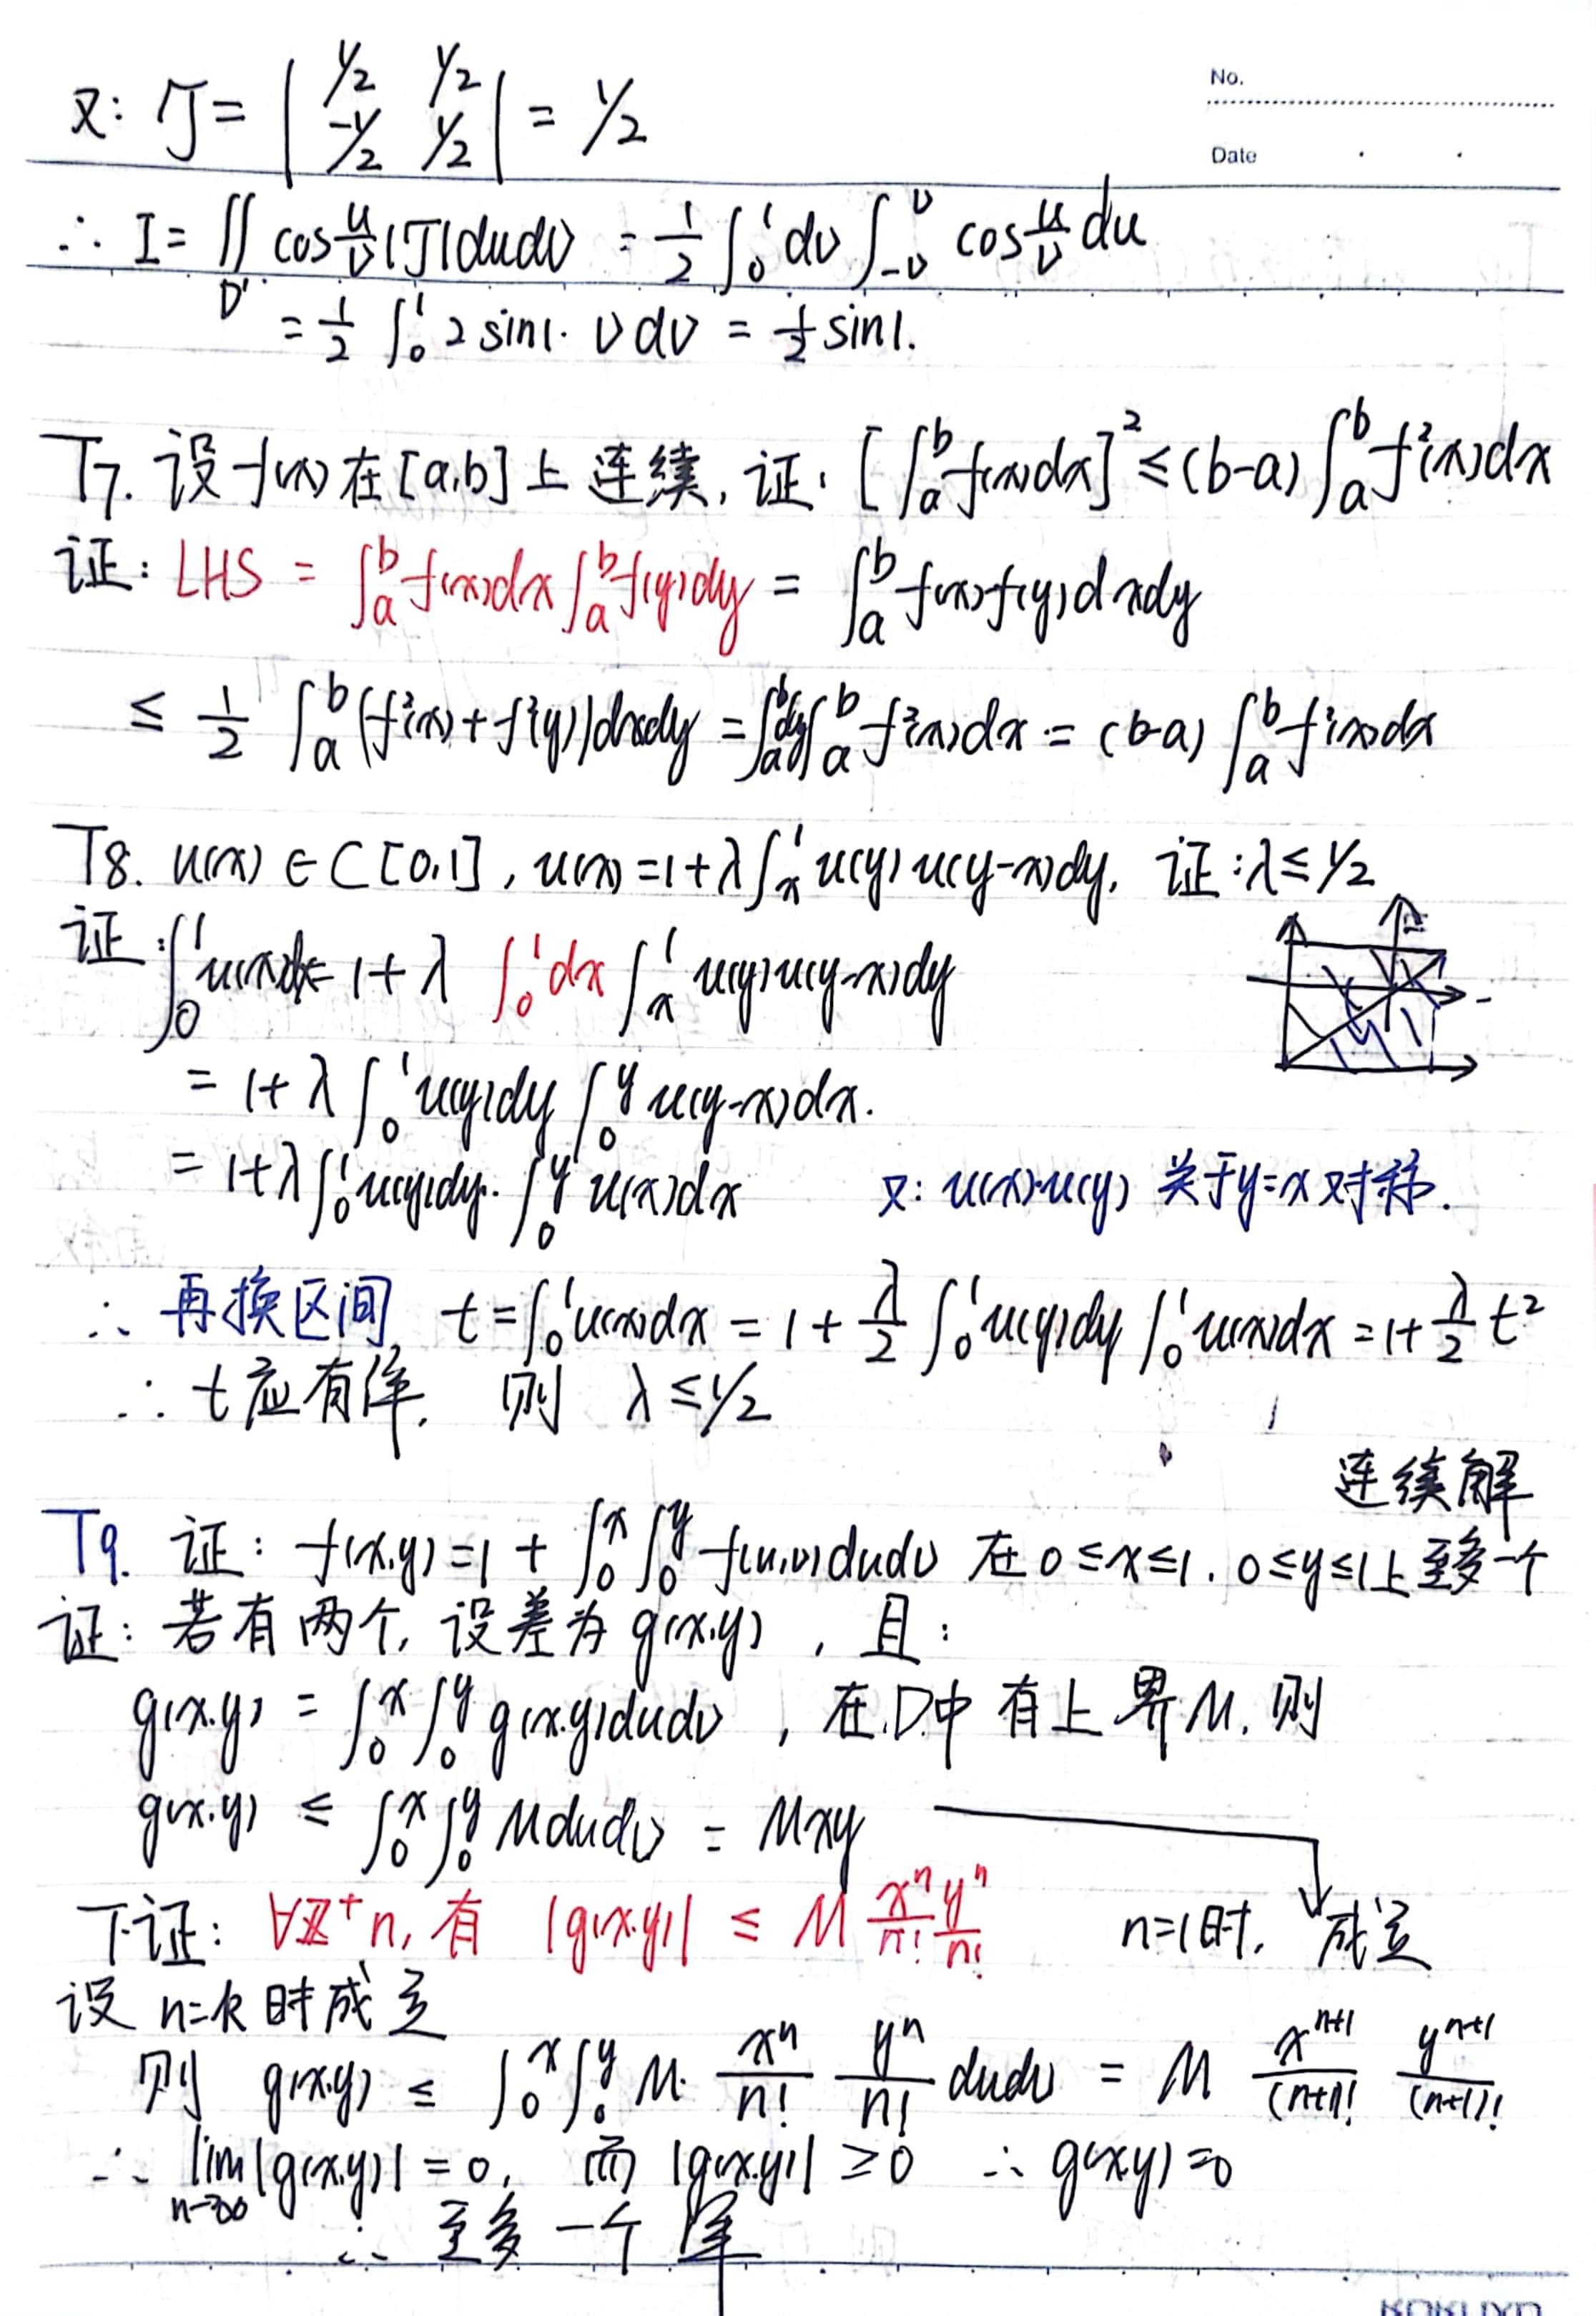 No.
又: J = | 1/2 1/2 |
| -1/2 1/2 | = 1/2
Date
∴ I = ∬_D' cos u/v |J| du dv = 1/2 ∫_0^1 dv ∫_{-v}^v cos u/v du
= 1/2 ∫_0^1 2 sin1 · v dv = 1/2 sin1.
T7. 设 f(x) 在 [a,b] 上 连续, 证: [∫_a^b f(x)dx]^2 ≤ (b-a) ∫_a^b f^2(x)dx
证: LHS = ∫_a^b f(x)dx ∫_a^b f(y)dy = ∫_a^b f(x)f(y)dxdy
≤ 1/2 ∫_a^b (f^2(x)+f^2(y))dxdy = ∫_a^b dy ∫_a^b f^2(x)dx = (b-a) ∫_a^b f^2(x)dx
T8. u(x) ∈ C[0,1], u(x) = 1+λ∫_x^1 u(y)u(y-x)dy, 证: λ ≤ 1/2
证: ∫_0^1 u(x)dx = 1+λ ∫_0^1 dx ∫_x^1 u(y)u(y-x)dy
= 1+λ∫_0^1 u(y)dy ∫_0^y u(y-x)dx.
= 1+λ∫_0^1 u(y)dy · ∫_0^y u(x)dx 又: u(x)·u(y) 关于y=x对称.
∴ 再换区间, t = ∫_0^1 u(x)dx = 1 + λ/2 ∫_0^1 u(y)dy ∫_0^1 u(x)dx = 1+ λ/2 t^2
∴ t应有解, 则 λ ≤ 1/2
连续解
T9. 证: f(x,y) = 1 + ∫_0^x ∫_0^y f(u,v)dudv 在 0≤x≤1, 0≤y≤1上至多一个
证: 若有两个, 设差为 g(x,y), 且:
g(x,y) = ∫_0^x ∫_0^y g(x,y)dudv, 在D中 有上界M, 则
g(x,y) ≤ ∫_0^x ∫_0^y Mdudv = Mxy
下证: ∀Z^+ n, 有 |g(x,y)| ≤ M x^n/n! y^n/n! n=1时, 成立
设 n=k 时成立
则 g(x,y) ≤ ∫_0^x ∫_0^y M · x^n/n! y^n/n! dudv = M x^{n+1}/(n+1)! y^{n+1}/(n+1)!
∴ lim_{n→∞} |g(x,y)| = 0, 而 |g(x,y)| ≥ 0 ∴ g(x,y)=0
∴ 至多一个解
KOKUYO